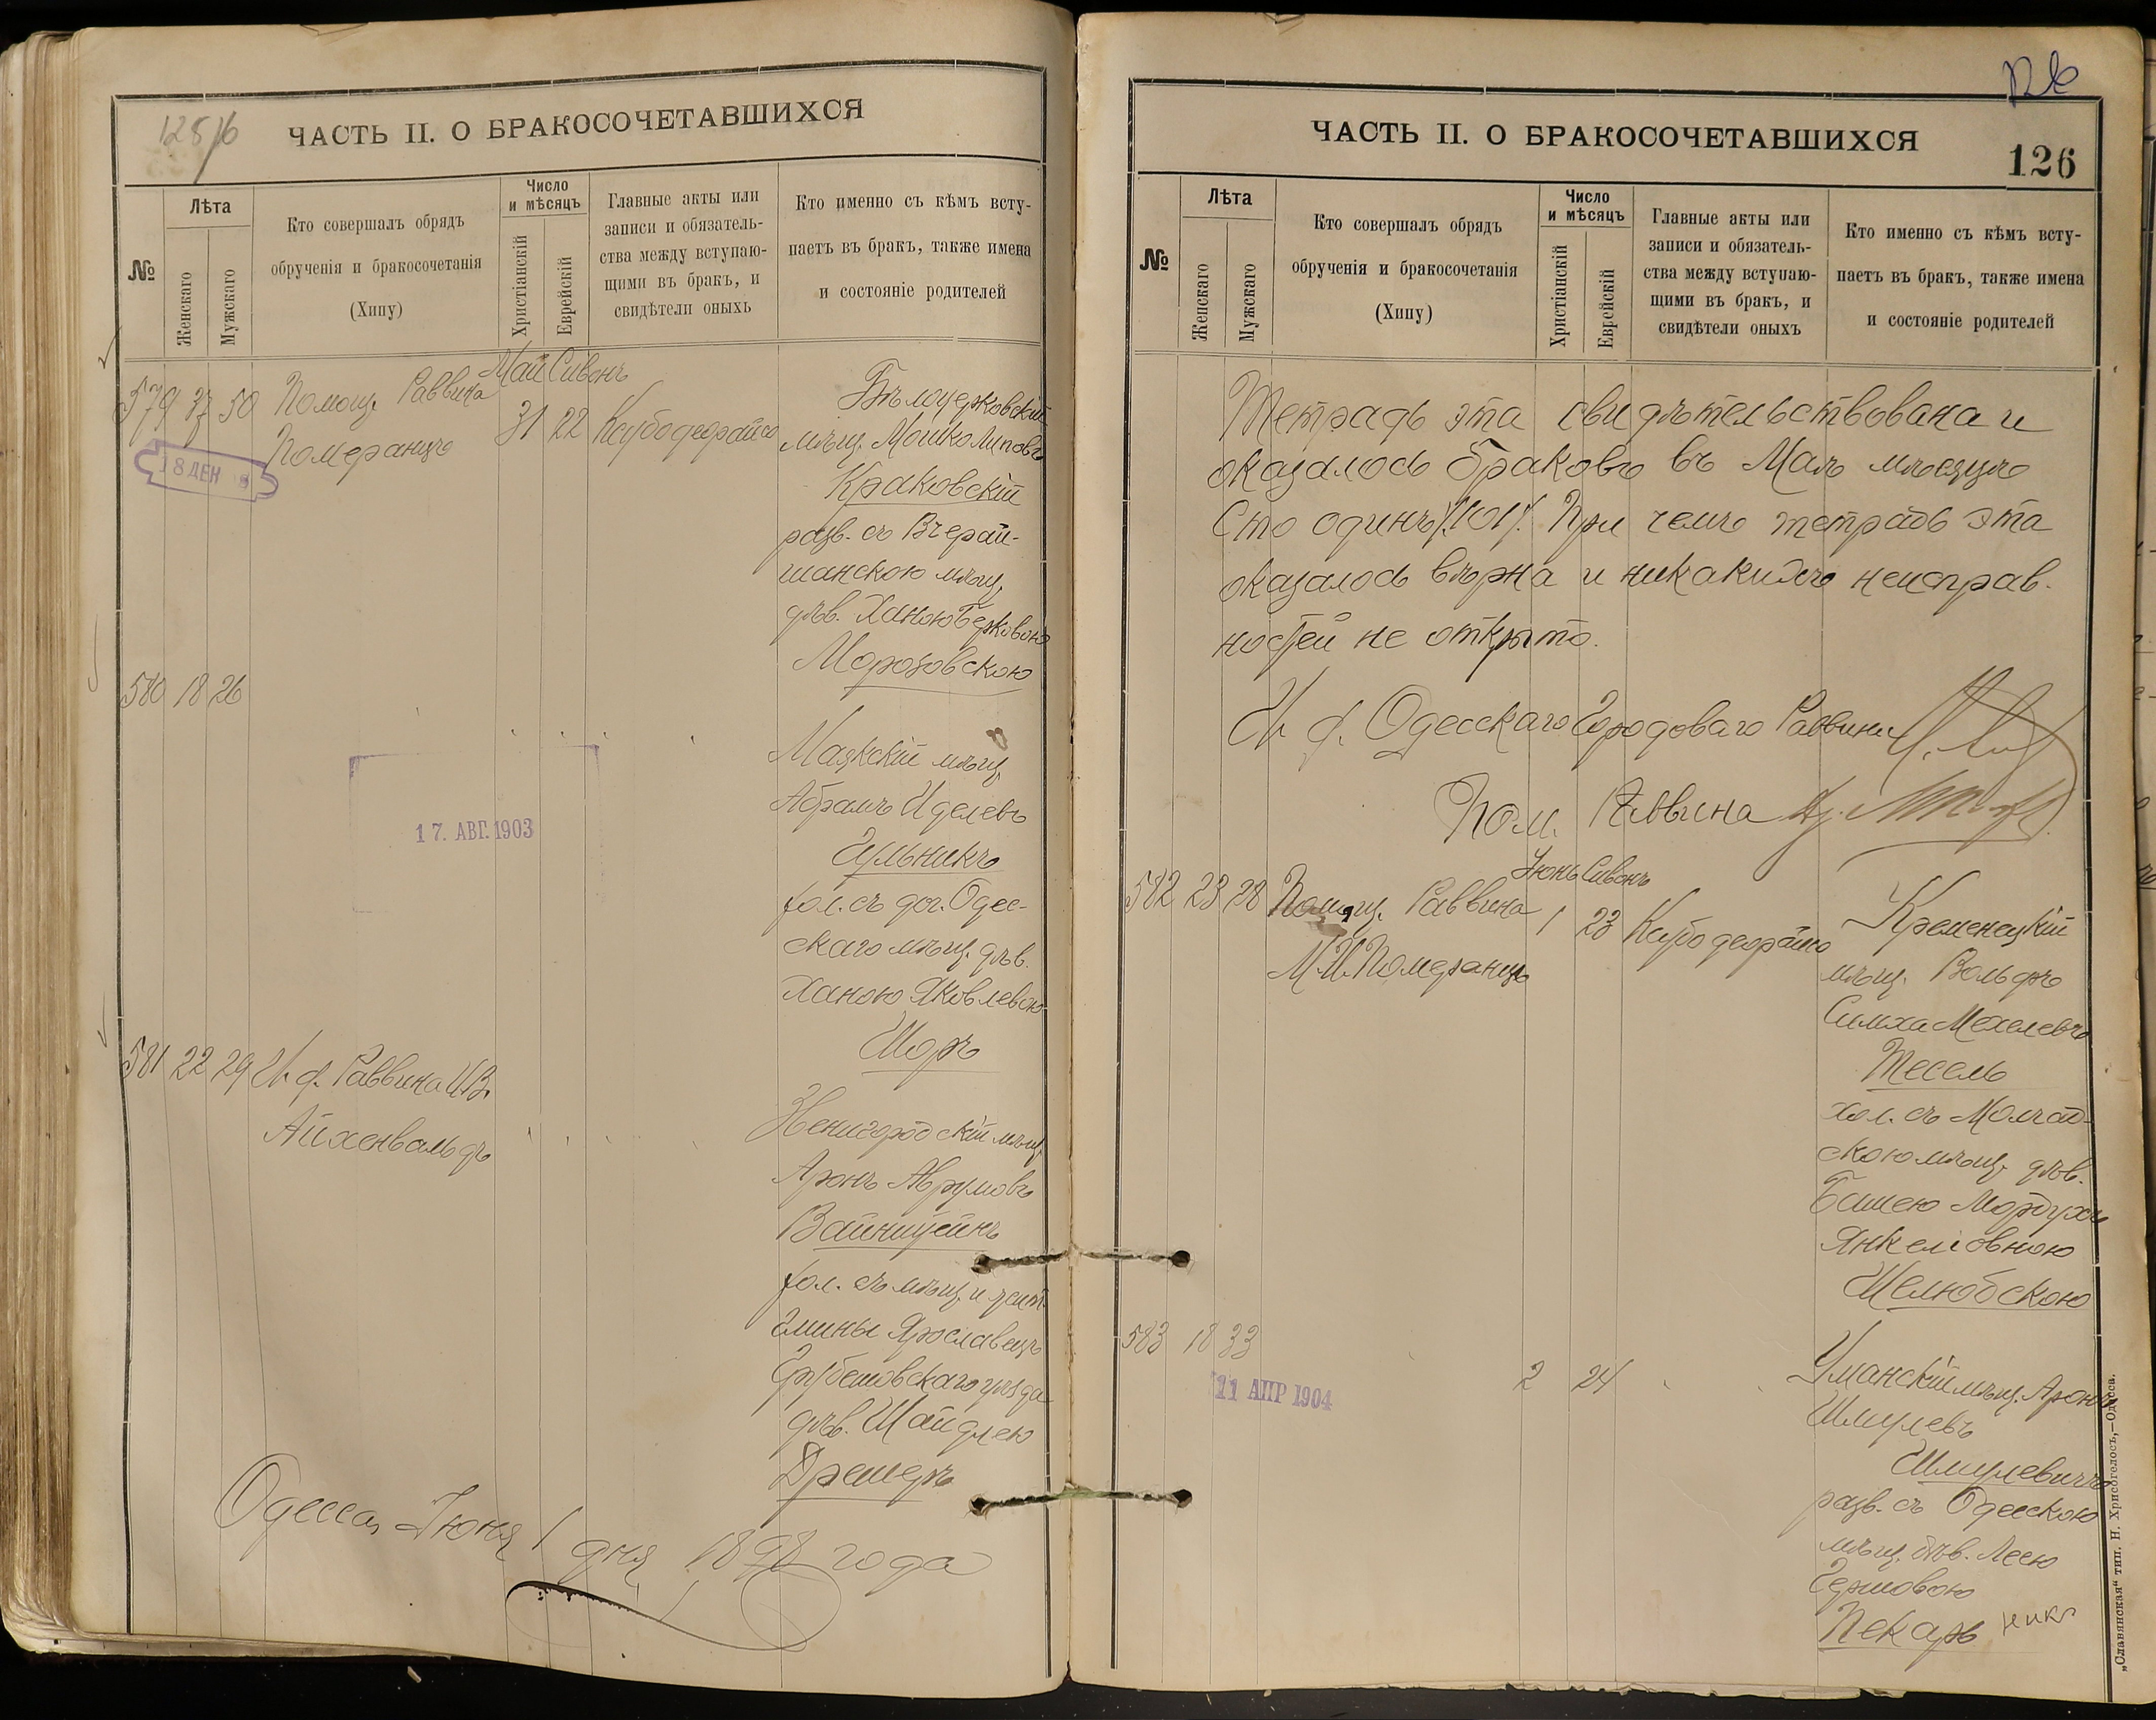 125/6
ЧАСТЬ II. О БРАКОСОЧЕТАВШИХСЯ
№
Лѣта
Женскаго
Мужскаго
Кто совершалъ обрядъ
обрученія и бракосочетанія
(Хипу)
Число
и мѣсяцъ
Христіанскій
Еврейскій
Главные акты или
записи и обязатель-
ства между вступаю-
щими въ бракъ, и
свидѣтели оныхъ
Кто именно съ кѣмъ всту-
паетъ въ бракъ, также имена
и состояніе родителей
Май Сивонъ
579 37 50 Помощ. Раввина 31 22
Померанцъ
18 ДЕН
Бѣлоцерковскій
мѣщ. Мошко Липовъ
Краковскій
разв. съ Вчерай-
шанскою мѣщ.
дѣв. Ханою Берковою
Морозовскою
580 18 26
17. АВГ. 1903
Маякскій мѣщ.
Абрамъ Иделевъ
Гульникъ
хол. съ доч. Одес-
скаго мѣщ. дѣв.
Ханою Яковлевою
Шоръ
581 22 29 И. ф. Раввина
Айхенвальдъ
Звенигородскій мѣщ.
Аронъ Аврумовъ
Вайнштейнъ
хол. съ мѣщ. и жит.
гмины Ярославецъ
Грубешовскаго уѣзда
дѣв. Шайдлею
Дрешеръ
Одесса, Іюня 1 дня 1898 года
ЧАСТЬ II. О БРАКОСОЧЕТАВШИХСЯ
126
№
Лѣта
Женскаго
Мужскаго
Кто совершалъ обрядъ
обрученія и бракосочетанія
(Хипу)
Число
и мѣсяцъ
Христіанскій
Еврейскій
Главные акты или
записи и обязатель-
ства между вступаю-
щими въ бракъ, и
свидѣтели оныхъ
Кто именно съ кѣмъ всту-
паетъ въ бракъ, также имена
и состояніе родителей
Тетрадь эта свидѣтельствована и
оказалось браковъ въ Маѣ мѣсяцѣ
Сто одинъ /101/. При чемъ тетрадь эта
оказалось вѣрна и никакихъ неисправ-
ностей не открыто.
И. ф. Одесскаго Городоваго Раввина
Пом. Раввина
Іюнь Сивонъ
582 23 28 Помощ. Раввина 1 23
М. И. Померанцъ
Кременецкій
мѣщ. Вольфъ
Симха Мехелевъ
Тесель
хол. съ Молчад-
скою мѣщ. дѣв.
Башею Мордухъ
Янкелевною
Шелюбскою
583 18 33 2 24
11 АПР 1904
Уманскій мѣщ. Аронъ
Шмулевъ
Шмулевичъ
разв. съ Одесскою
мѣщ. дѣв. Леею
Гершовою
Пекарь никъ
„Славянская“ тип. Н. Хрисогелосъ,—Одесса.